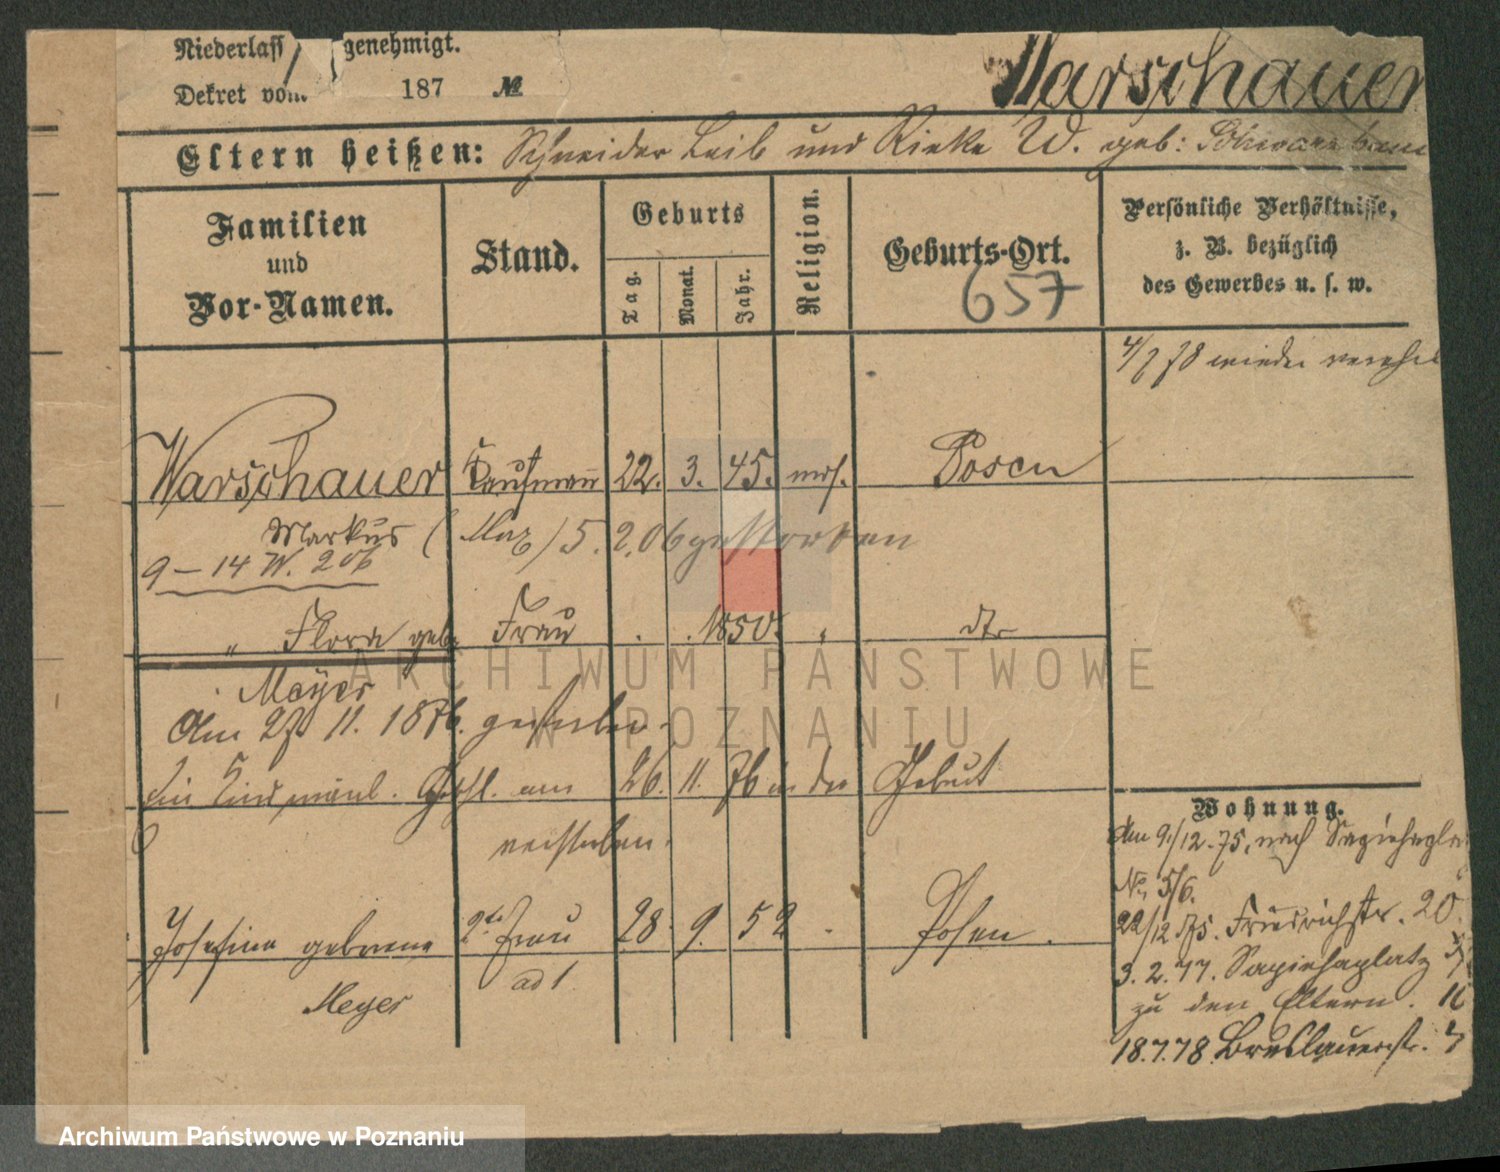 Niederlass genehmigt.
Dekret vom 187 №
Warschauer
Eltern heißen: Schneider Leib und Rieke W. geb: Schwarzbaum
Familien
und
Vor-Namen.
Stand.
Geburts
Tag.
Monat.
Jahr.
Religion.
Geburts-Ort.
657
Persönliche Verhältnisse,
z. B. bezüglich
des Gewerbes u. s. w.
4/7 78 wieder verehel
Warschauer Kaufmann 22. 3. 45. mos. Posen
Markus (Max) 5. 2. 06 gestorben
9 – 14 W. 206
" Flora geb. Frau . . 1850. " dto
Meyer
Am 27. 11. 1876. gestorben.
Ein Kind männl. Geschl. am 26. 11. 76 in der Geburt
verstorben.
Josefine geborene 2te Frau 28. 9. 52 . Posen.
Meyer ad 1
Wohnung.
Am 9/12. 75. nach Sapiehaplatz
No. 5/6.
22/12 75. Friedrichstr. 20.
3. 2. 77. Sapiehaplatz
zu den Eltern.
18.7.78 Breslauerstr.
ARCHIWUM PAŃSTWOWE
W POZNANIU
Archiwum Państwowe w Poznaniu